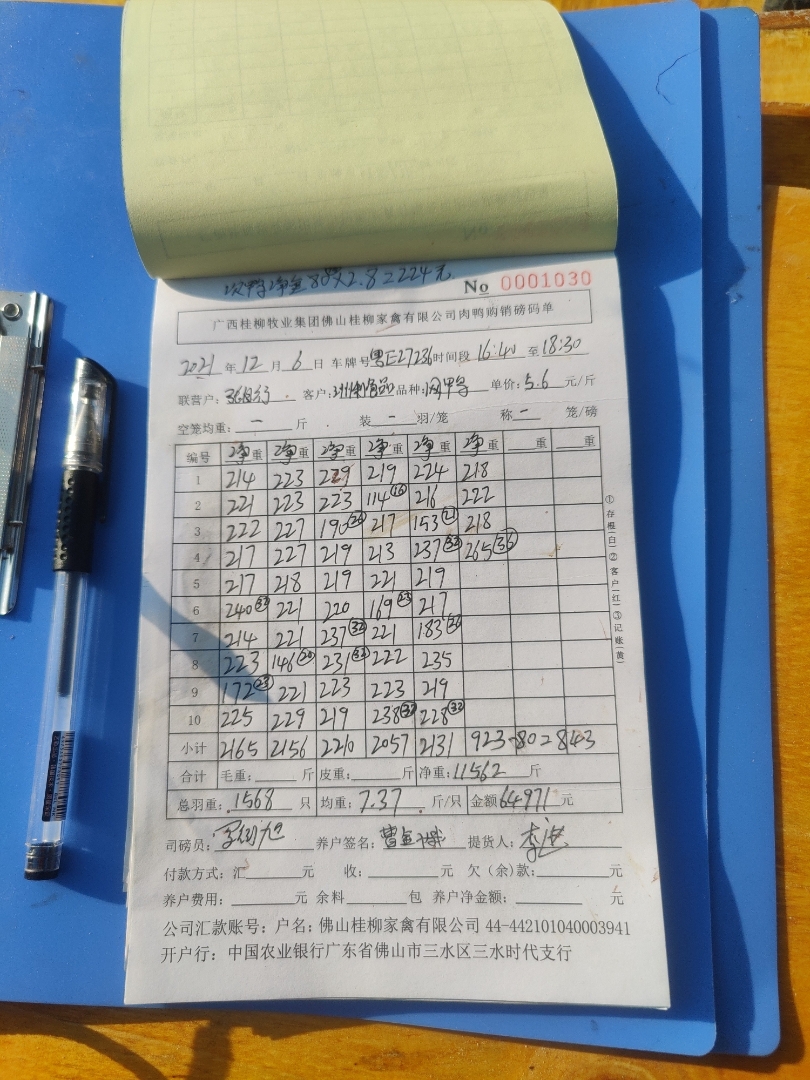 净重 80×2.8=224元
No 0001030
广西桂柳牧业集团佛山桂柳家禽有限公司肉鸭购销磅码单
2021年12月6日 车牌号粤E27236时间段16:40至18:30
联营户: 客户: 食品 品种: 单价:5.6元/斤
空笼均重:一斤 装一羽/笼 称一笼/磅
编号 净重 净重 净重 净重 净重 净重 重 重
1 214 223 229 219 224 218
2 221 223 223 114⑯ 216 222
3 222 227 190㉖ 217 153㉑ 218
4 217 227 219 213 237㉜ 265㊱
5 217 218 219 221 219
6 240㉜ 221 220 169㉓ 217
7 214 221 237㉜ 221 183㉖
8 223 146⑳ 231㉜ 222 235
9 172㉓ 221 223 223 219
10 225 229 219 238㉜ 228㉜
小计 2165 2156 2210 2057 2131 923-80=843
合计 毛重: 斤 皮重: 斤 净重:11562斤
总羽重:1568只 均重:7.37斤/只 金额64971元
司磅员: 养户签名: 提货人:
付款方式:汇 元 收: 元 欠(余)款: 元
养户费用: 元 余料 包 养户净金额: 元
公司汇款账号:户名:佛山桂柳家禽有限公司 44-442101040003941
开户行:中国农业银行广东省佛山市三水区三水时代支行
①存根(白)②客户(红)③记账(黄)